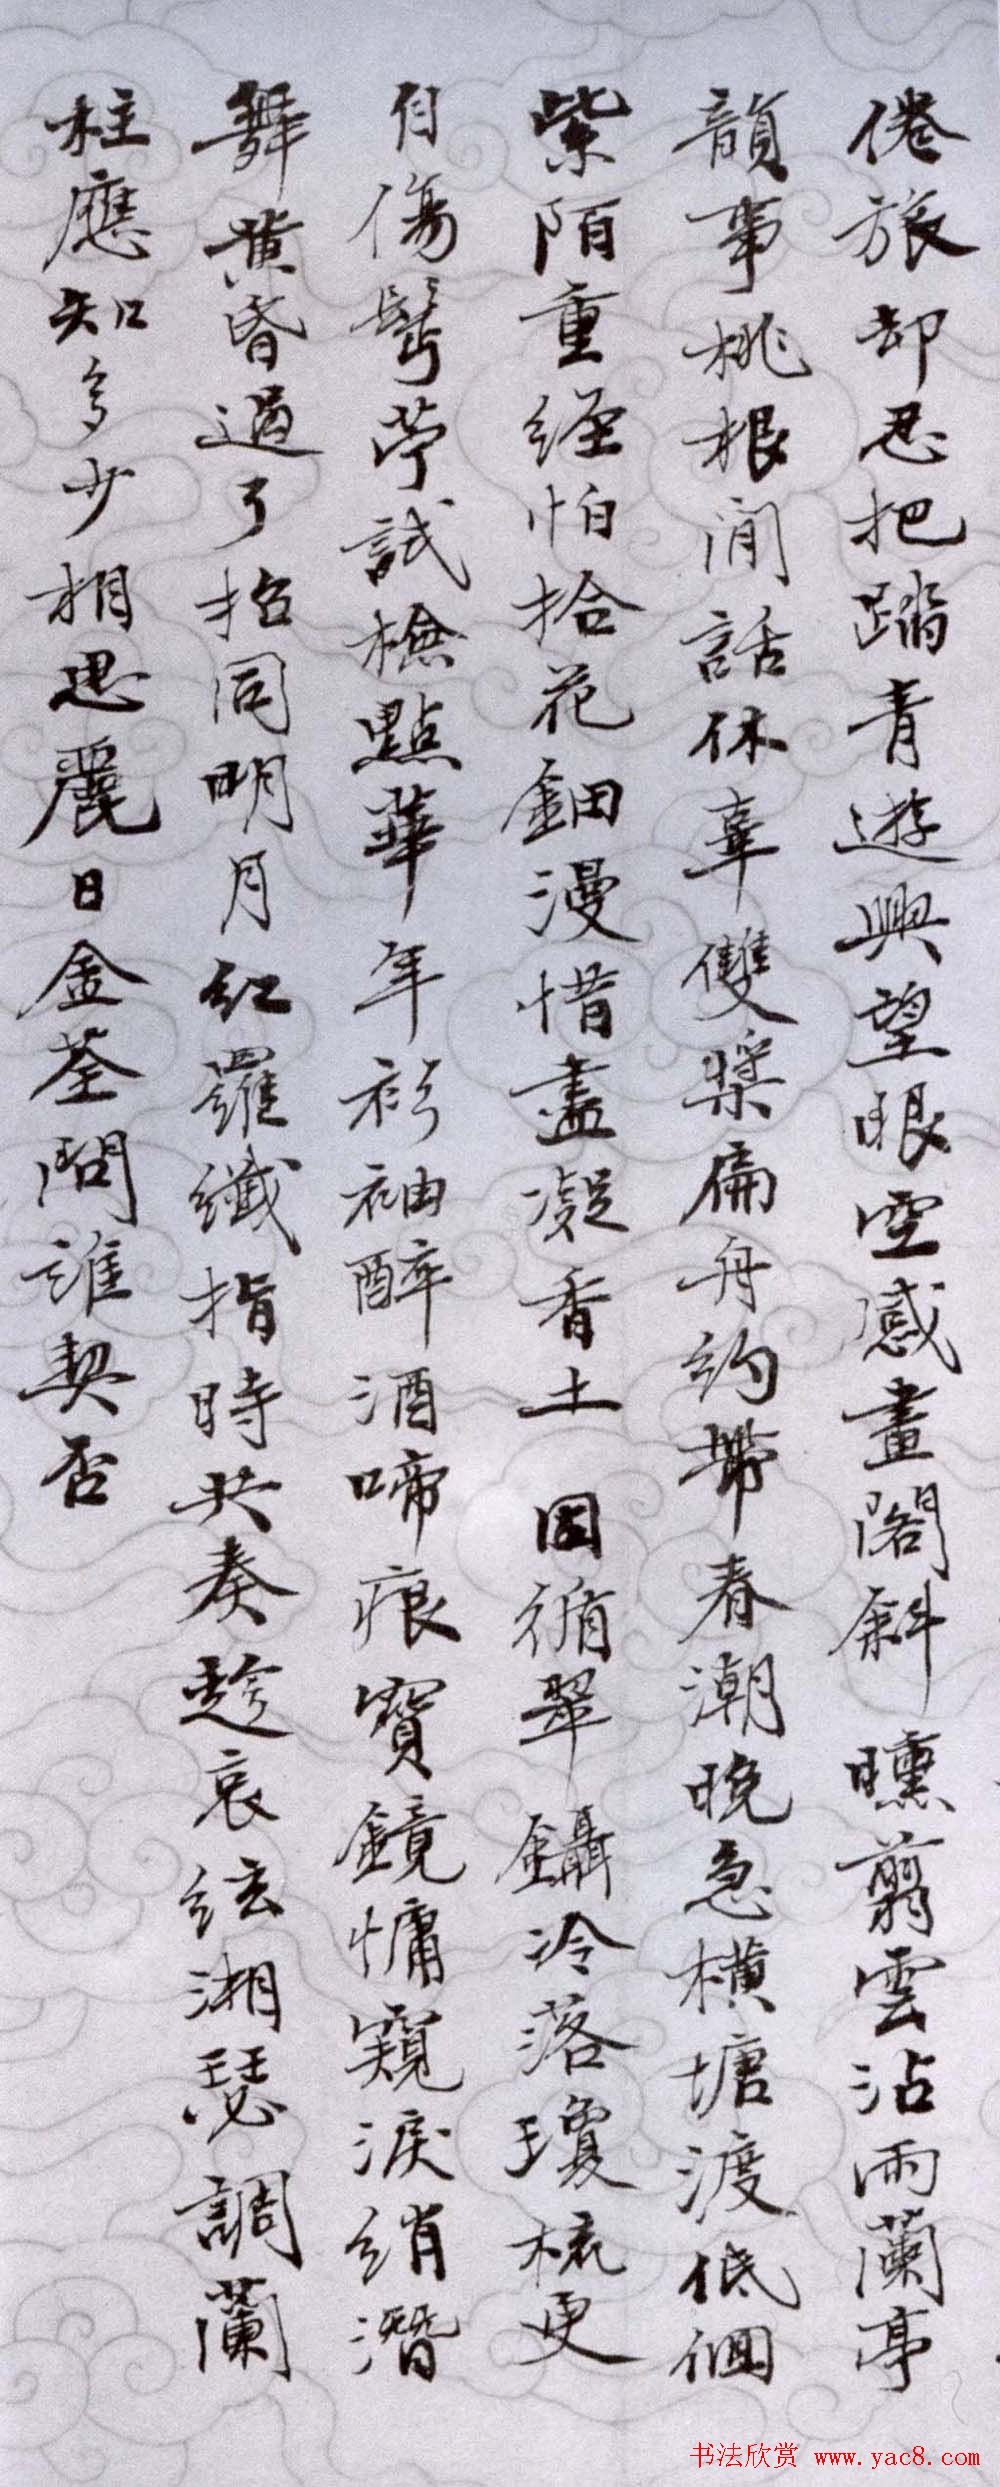 倦旅却忍把踏青遊興望眼空感畫閣斜曛翦雲沾雨蘭亭
韻事桃根閒話休辜雙槳扁舟約帶春潮晚急橫塘渡低徊
紫陌重經怕拾花鈿漫惜盡凝香土因循翠鑷冷落瓊梳更
自傷鬢苧試檢點華年衫袖醉酒啼痕寶鏡慵窺淚綃潛
舞黃昏過了招同明月紅羅纖指時共奏趁哀絃湘瑟調蘭
柱應知多少相思麗日金荃問誰契否
书法欣赏 www.yac8.com